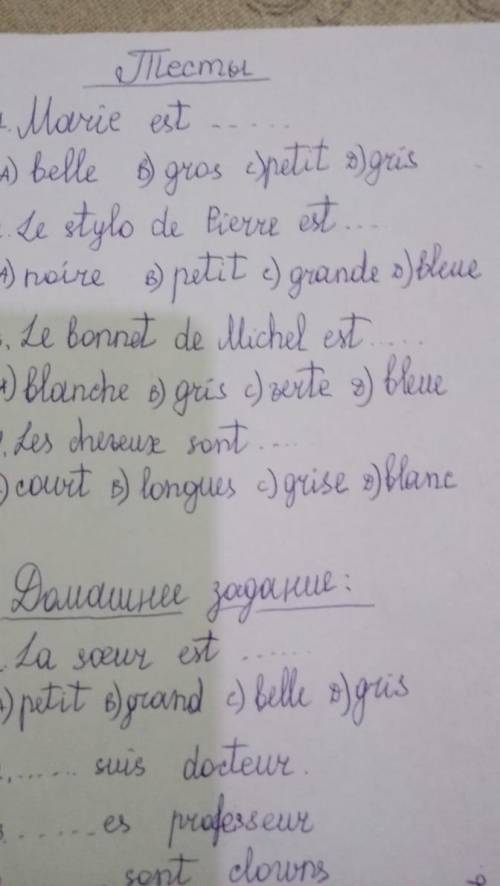 Тесты
. Marie est ......
A) belle B) gros C) petit D) gris
. Le stylo de Pierre est ....
A) noire B) petit C) grande D) bleue
. Le bonnet de Michel est .....
A) blanche B) gris C) verte D) bleue
. Les cheveux sont ....
) court B) longues C) grise D) blanc
Домашнее задание:
. La sœur est ......
A) petit B) grand C) belle D) gris
....... suis docteur.
...... es professeur
sont clowns